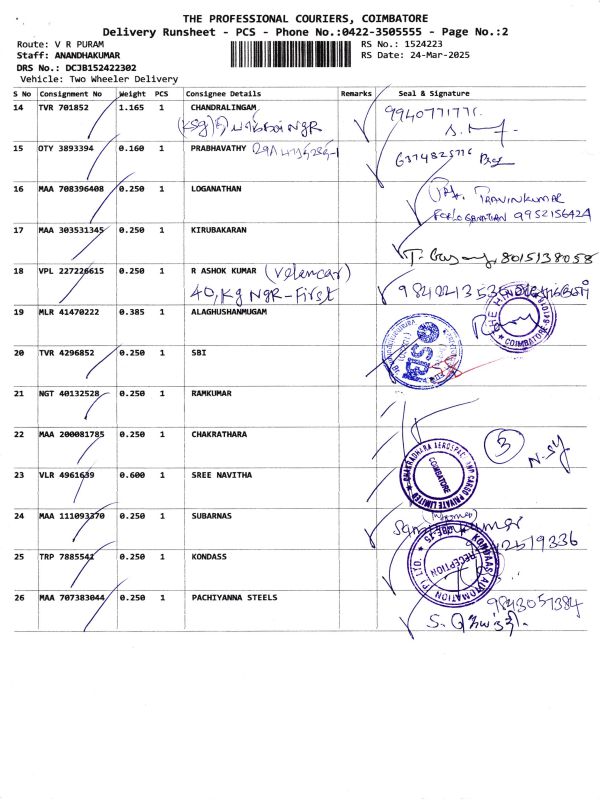 THE PROFESSIONAL COURIERS, COIMBATORE
Delivery Runsheet - PCS - Phone No.:0422-3505555 - Page No.:2
Route: V R PURAM
RS No.: 1524223
Staff: ANANDHAKUMAR
RS Date: 24-Mar-2025
DRS No.: DCJB152422302
Vehicle: Two Wheeler Delivery
S No Consignment No Weight PCS Consignee Details Remarks Seal & Signature
14 TVR 701852 1.165 1 CHANDRALINGAM
NGR
15 OTY 3893394 0.160 1 PRABHAVATHY
16 MAA 708396408 0.250 1 LOGANATHAN
PRAVINKUMAR
FOR LOGANATHAN 9952156424
17 MAA 303531345 0.250 1 KIRUBAKARAN
8015138058
18 VPL 227226615 0.250 1 R ASHOK KUMAR (Velancar)
40, Kg NgR-First
19 MLR 41470222 0.385 1 ALAGHUSHANMUGAM
COIMBATORE
20 TVR 4296852 0.250 1 SBI
21 NGT 40132528 0.250 1 RAMKUMAR
22 MAA 200081785 0.250 1 CHAKRATHARA 3
CHAKRADHARA AEROSPACE AND CARGO PRIVATE LIMITED
COIMBATORE
23 VLR 4961639 0.600 1 SREE NAVITHA
24 MAA 111093370 0.250 1 SUBARNAS
25 TRP 7885541 0.250 1 KONDASS
KONDAAS AUTOMATION (P) LTD.
RECEPTION
26 MAA 707383044 0.250 1 PACHIYANNA STEELS
9843051384